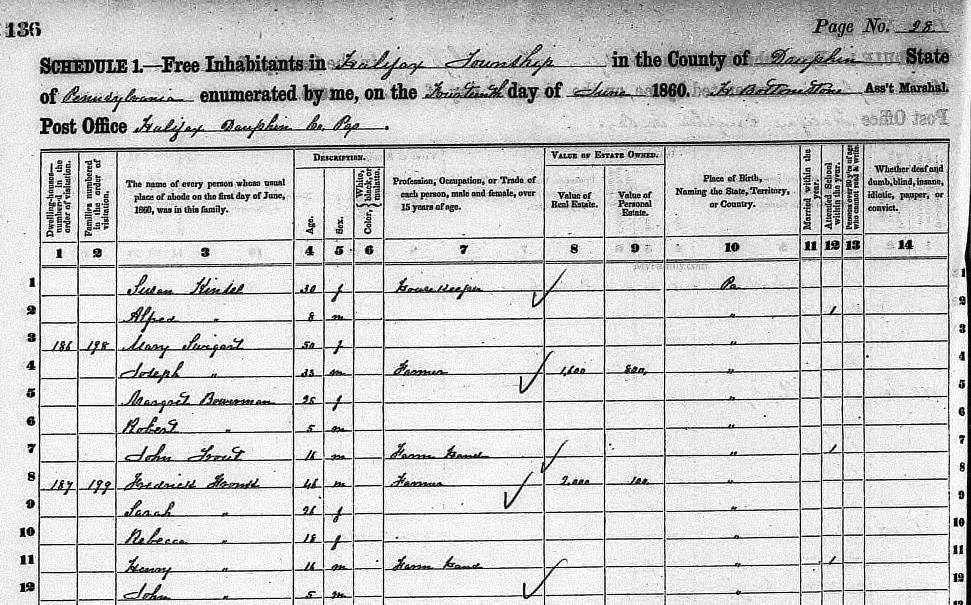 136
Page No. 28
SCHEDULE 1.—Free Inhabitants in Halifax Township in the County of Dauphin State
of Pennsylvania enumerated by me, on the Fourteenth day of June 1860. Ass't Marshal.
Post Office Halifax Dauphin Co. Pa
Dwelling-houses—numbered in the order of visitation.
Families numbered in the order of visitation.
The name of every person whose usual place of abode on the first day of June, 1860, was in this family.
DESCRIPTION.
Age.
Sex.
Color, White, black, or mulatto.
Profession, Occupation, or Trade of each person, male and female, over 15 years of age.
VALUE OF ESTATE OWNED.
Value of Real Estate.
Value of Personal Estate.
Place of Birth, Naming the State, Territory, or Country.
Married within the year.
Attended School within the year.
Persons over 20 y'rs of age who cannot read & write.
Whether deaf and dumb, blind, insane, idiotic, pauper, or convict.
1 2 3 4 5 6 7 8 9 10 11 12 13 14
1 Susan Kindel 30 f House Keeper Pa 1
2 Alfred " 8 m " 1 2
3 186 198 Mary Swigart 50 f " 3
4 Joseph " 33 m Farmer 1,600 800 " 4
5 Margret Bowerman 25 f " 5
6 Robert " 5 m " 6
7 John Trout 16 m Farm Hand " 1 7
8 187 199 Fredrick 46 m Farmer 2,000 100 " 8
9 Sarah " 26 f " 9
10 Rebecca " 18 f " 10
11 Henry " 16 m Farm Hand " 1 11
12 John " 5 m " 12